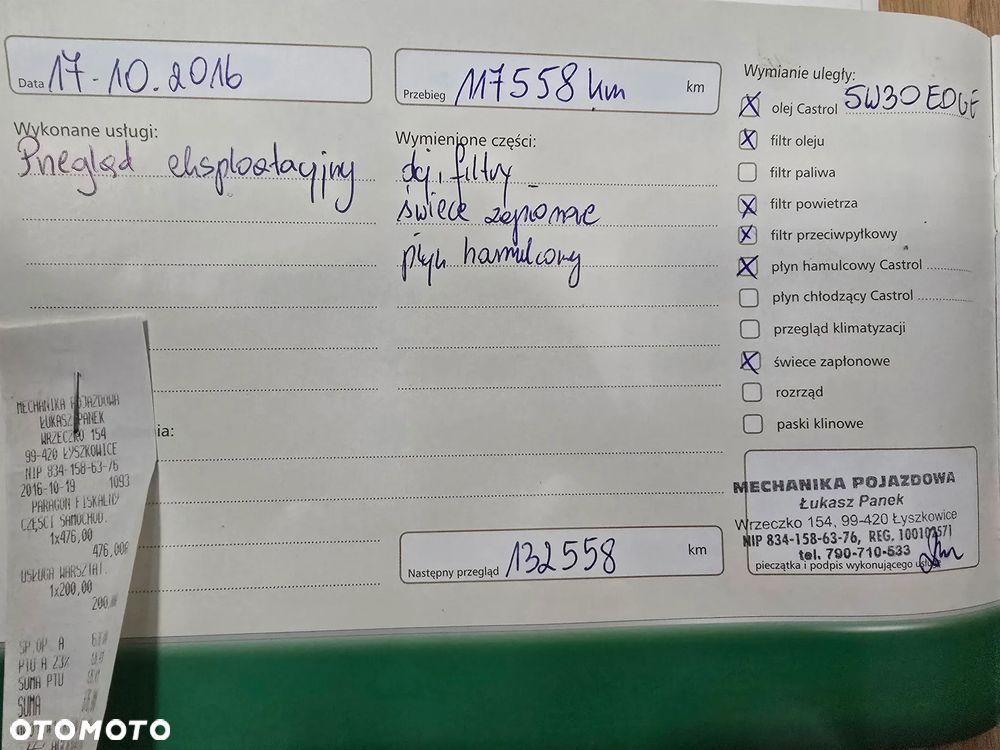 Data 17-10.2016
Przebieg 117558 km km
Wykonane usługi:
Przegląd eksploatacyjny
Wymienione części:
olej, filtry
świece zapłonowe
płyn hamulcowy
Wymianie uległy:
olej Castrol 5W30 EDGE
filtr oleju
filtr paliwa
filtr powietrza
filtr przeciwpyłkowy
płyn hamulcowy Castrol
płyn chłodzący Castrol
przegląd klimatyzacji
świece zapłonowe
rozrząd
paski klinowe
ia:
Następny przegląd 132558 km
MECHANIKA POJAZDOWA
Łukasz Panek
Wrzeczko 154, 99-420 Łyszkowice
NIP 834-158-63-76, REG. 100103571
tel. 790-710-533
pieczątka i podpis wykonującego usługę
MECHANIKA POJAZDOWA
ŁUKASZ PANEK
WRZECZKO 154
99-420 ŁYSZKOWICE
NIP 834-158-63-76
2016-10-19 1093
PARAGON FISKALNY
CZĘŚCI SAMOCHOD.
1x476,00
476,00
USŁUGA WARSZTAT.
1x200,00
200,
SP.OP. A
PTU A 23%
SUMA PTU
SUMA
OTOMOTO